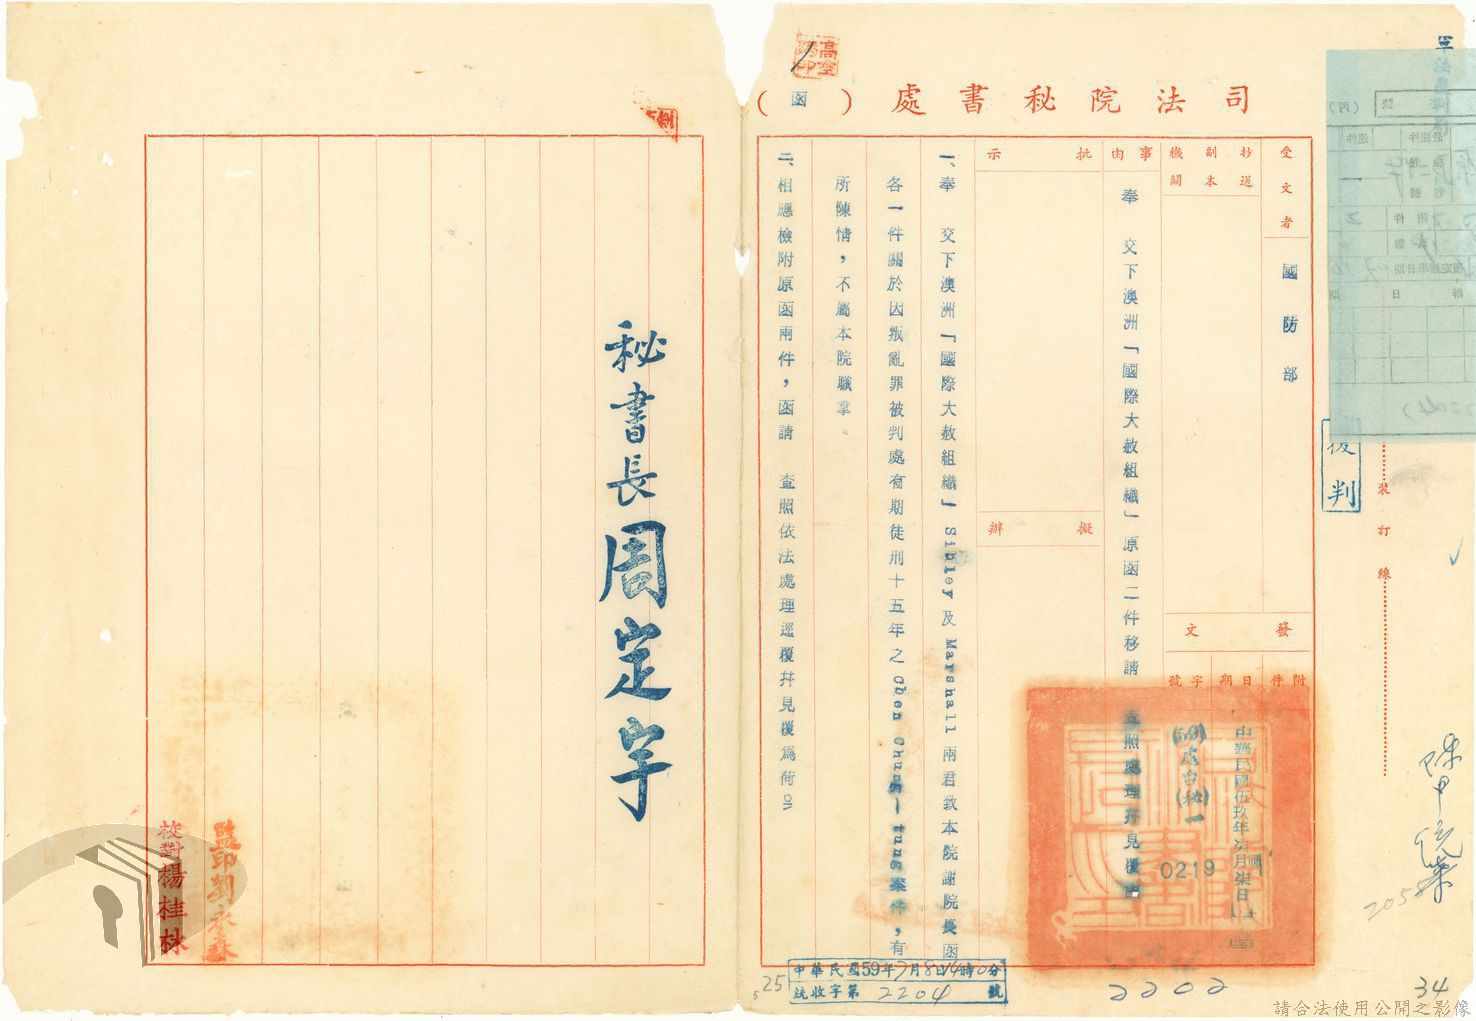 司法院秘書處（函）
受文者
國防部
抄送副本機關
事由
奉　交下澳洲「國際大赦組織」原函二件移請　查照處理幷見覆由
批示
擬辦
發文
附件
日期
字號
中華民國伍玖年柒月柒日
(59)處台(秘)一
0219
一、奉　交下澳洲「國際大赦組織」Sibley及Marshall兩君致本院謝院長函
各一件關於因叛亂罪被判處有期徒刑十五年之Chen Chung-tung案件，有
所陳情，不屬本院職掌。
二、相應檢附原函兩件，函請　查照依法處理逕覆幷見覆爲荷。
秘書長周定宇
監印劉
校對楊桂林
中華民國59年7月8日14時0分
統收字第2204號
2202
25
34
205
裝訂線
判
請合法使用公開之影像